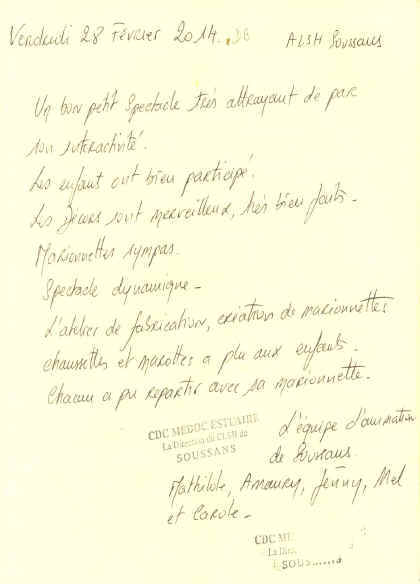 Vendredi 28 Février 2014. ALSH Soussans
Un bon petit spectacle très attrayant de par
son interactivité.
Les enfant ont bien participé.
Les Décors sont merveilleux, très bien faits.
Marionnettes sympas.
Spectacle dynamique.
L'atelier de fabrication, création de marionnettes
chaussettes et marottes a plu aux enfants.
Chacun a pu repartir avec sa marionnette.
CDC MEDOC ESTUAIRE
La Direction du CLSH de
SOUSSANS
L'équipe d'animation
de Soussans.
Mathilde, Amaury, Jenny, Mel
et Carole.
CDC ME
La Direc
SOUS